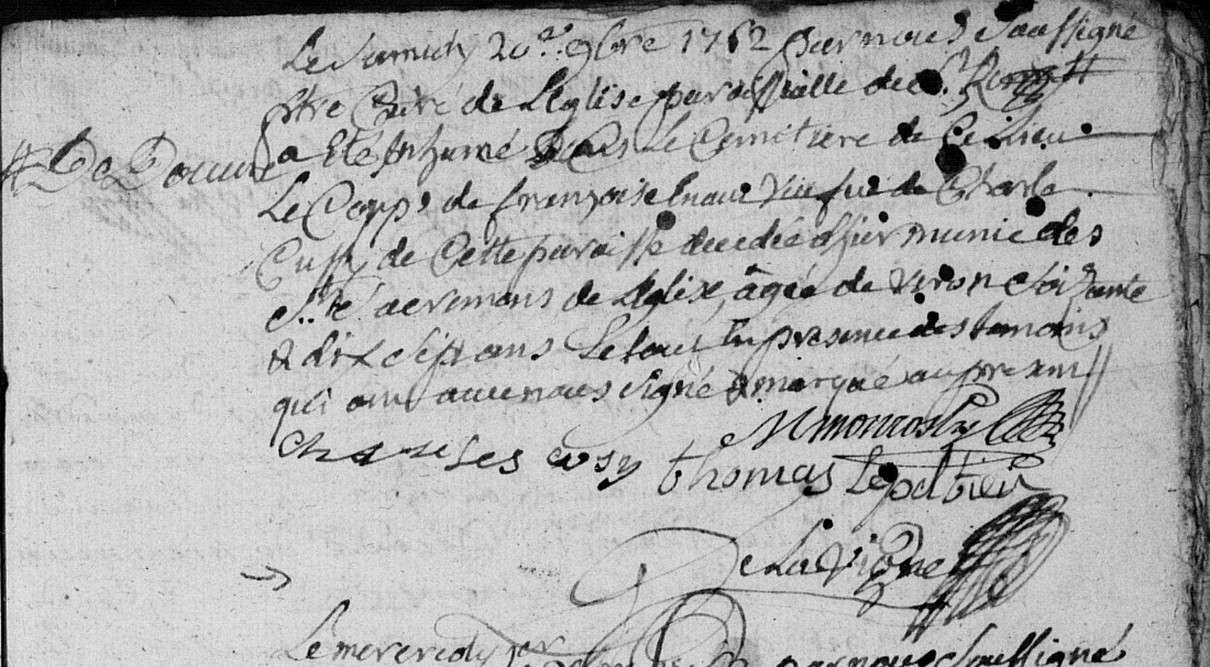 Le Samedy 20e 9bre 1762 par nous Soussigné
ptre Curé de L'Eglise paroissialle de St. Rom #
# De Douvre
a Eté Inhumé Dans Le Cemitiere de Ce Lieu
Le Corps de françoise veufue de Charle
Cussy de Cette paroisse decedée d'hier munie des
Sts Sacremans de L'Eglise, agée de viron Soixante
& dix Sept ans Le tout En presence des temoins
qui ont avec nous Signé & marqué au presant
charles cusy thomas Lepeltier
De La Vigne
Le mercredy 1er par nous Soussigné